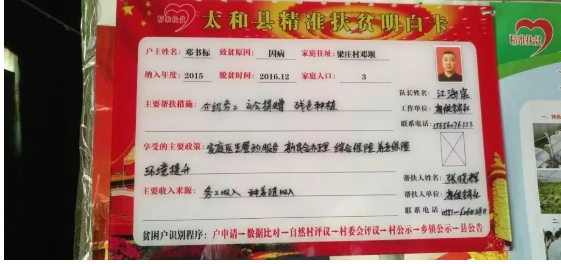 精准扶贫
太和县精准扶贫明白卡
精准扶贫
户主姓名: 邓书标 致贫原因: 因病 家庭住址: 梁庄村邓堰
纳入年度: 2015 脱贫时间: 2016.12 家庭人口: 3
队长姓名:
主要帮扶措施: 介绍务工 社会捐赠 特色种植
工作单位:
联系电话
享受的主要政策: 家庭医生签约服务 新农合办理 综合保障 养老保险
环境提升
帮扶人姓名:
主要收入来源: 务工收入 种养殖收入
帮扶人单位:
联系电话
贫困户识别程序: 户申请→数据比对→自然村评议→村委会评议→村公示→乡镇公示→县公告